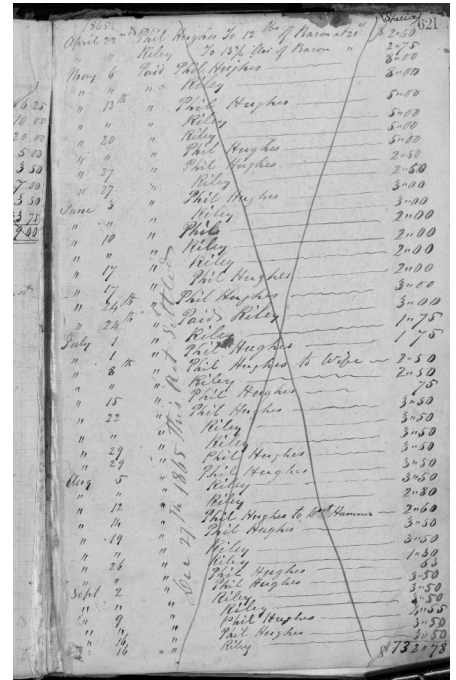 6 25
10 00
20 00
5 00
3 50
7 00
3 50
33 75
9 40
621
1865
April 22nd Phil Hughes To 12 lbs of Bacon at 20 2"40
" " Riley To 13¾ lbs of Bacon " 2"75
May 6 Paid Phil Hughes 8"00
" " " Riley 8"00
" 13th " Phil Hughes 5"00
" " " Riley 5"00
" 20 " Riley 5"00
" " " Phil Hughes 5"00
" 27 " Phil Hughes 2"50
" 27 " Riley 2"50
June 3 " Phil Hughes 3"00
" " " Riley 3"00
" 10 " Phil 2"00
" " " Riley 2"00
" " " Riley 2"00
" 17 " Phil Hughes 2"00
" 17 " Phil Hughes 3"00
" 24th " Paid Riley 3"00
" 24th " Riley 1"75
July 1 " Phil Hughes 1 75
" 1 " Phil Hughes to Wife 2"50
" 8th " Riley 2"50
" " " Phil Hughes 75
" 15 " Phil Hughes 3"50
" 22 " Riley 3"50
" " " Riley 3"50
" 29 " Phil Hughes 3"50
" 29 " Phil Hughes 3"50
Aug 5 " Riley 3"50
" " " Riley 2"80
" 12 " Phil Hughes to Hammer 2"60
" 14 " Phil Hughes 3"50
" 19 " Riley 3"50
" " " Riley 1"30
" 26 " Phil Hughes 63
" " " Phil Hughes 3"50
Sept 2 " Riley 3"50
" " " Riley 3"50
" 9 " Phil Hughes
" " " Phil Hughes 3"50
" 16 " Riley $132"78
" 16 "
Dec 27th 1865 This Act Settled